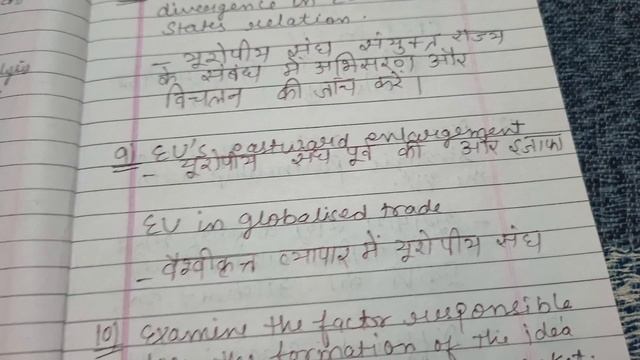 divergence in
States relation.
- यूरोपीय संघ संयुक्त राज्य
के संबंध में अभिसरण और
विचलन की जांच करें।
9) EU's eastward enlargement
- यूरोपीय संघ पूर्व की और इजाफा
EU in globalised trade
- वैश्वीकृत व्यापार में यूरोपीय संघ
10) Examine the factor responsible
formation of the idea